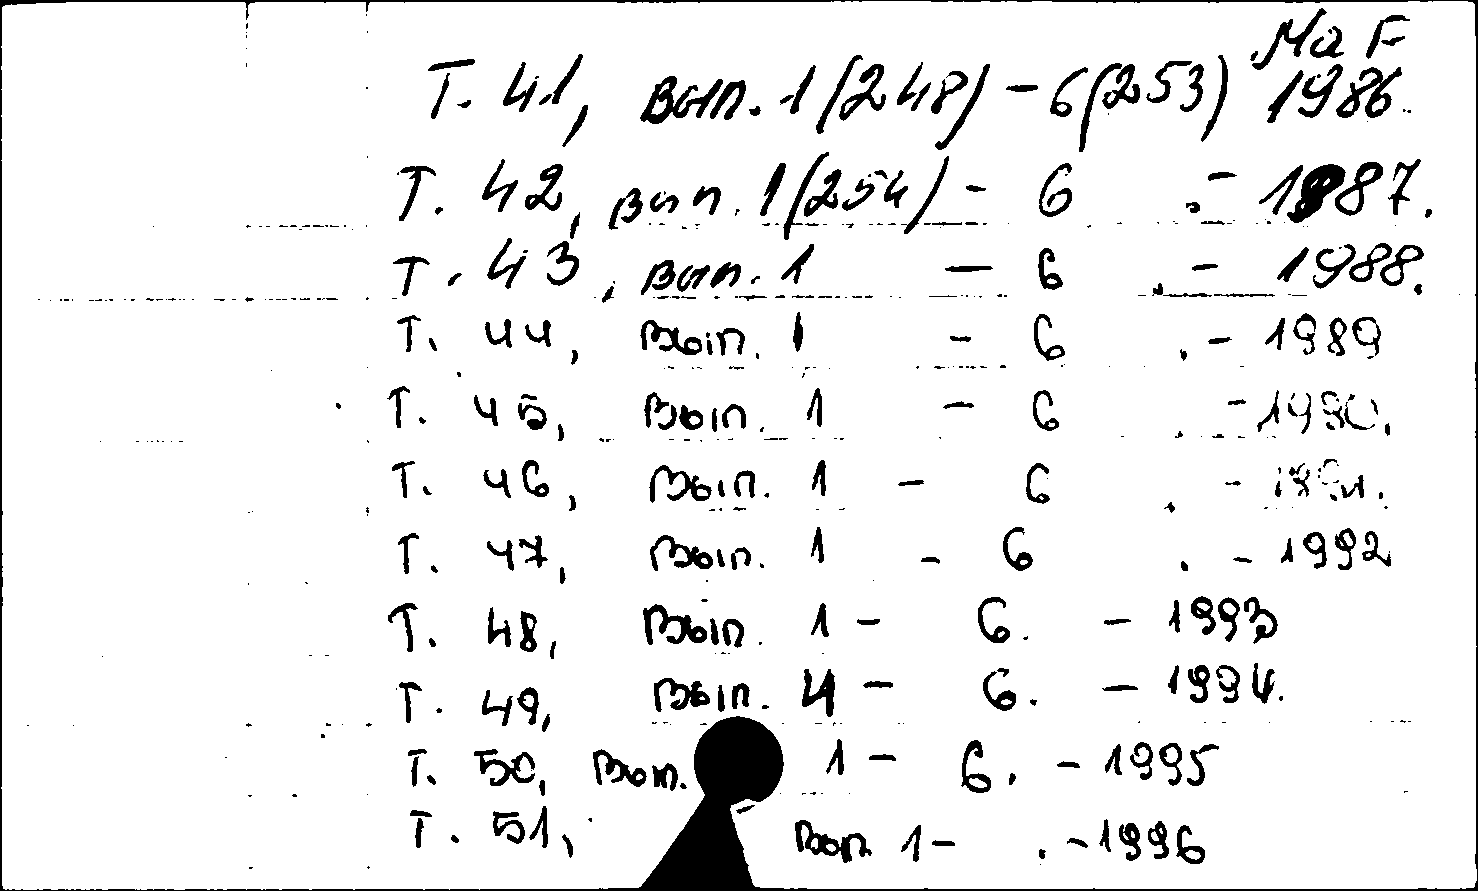 МаF
Т. 41, вып. 1(248) - 6(253) 1986.
Т. 42, вып. 1(254) - 6 . - 1987.
Т. 43, вып. 1 - 6 . - 1988.
Т. 44, вып. 1 - 6 . - 1989
Т. 45, вып. 1 - 6 . - 1990.
Т. 46, вып. 1 - 6 . - 1991.
Т. 47, вып. 1 - 6 . - 1992
Т. 48, вып. 1 - 6. - 1993
Т. 49, вып. 4 - 6. - 1994.
Т. 50, вып. 1 - 6. - 1995
Т. 51, вып. 1 - . - 1996